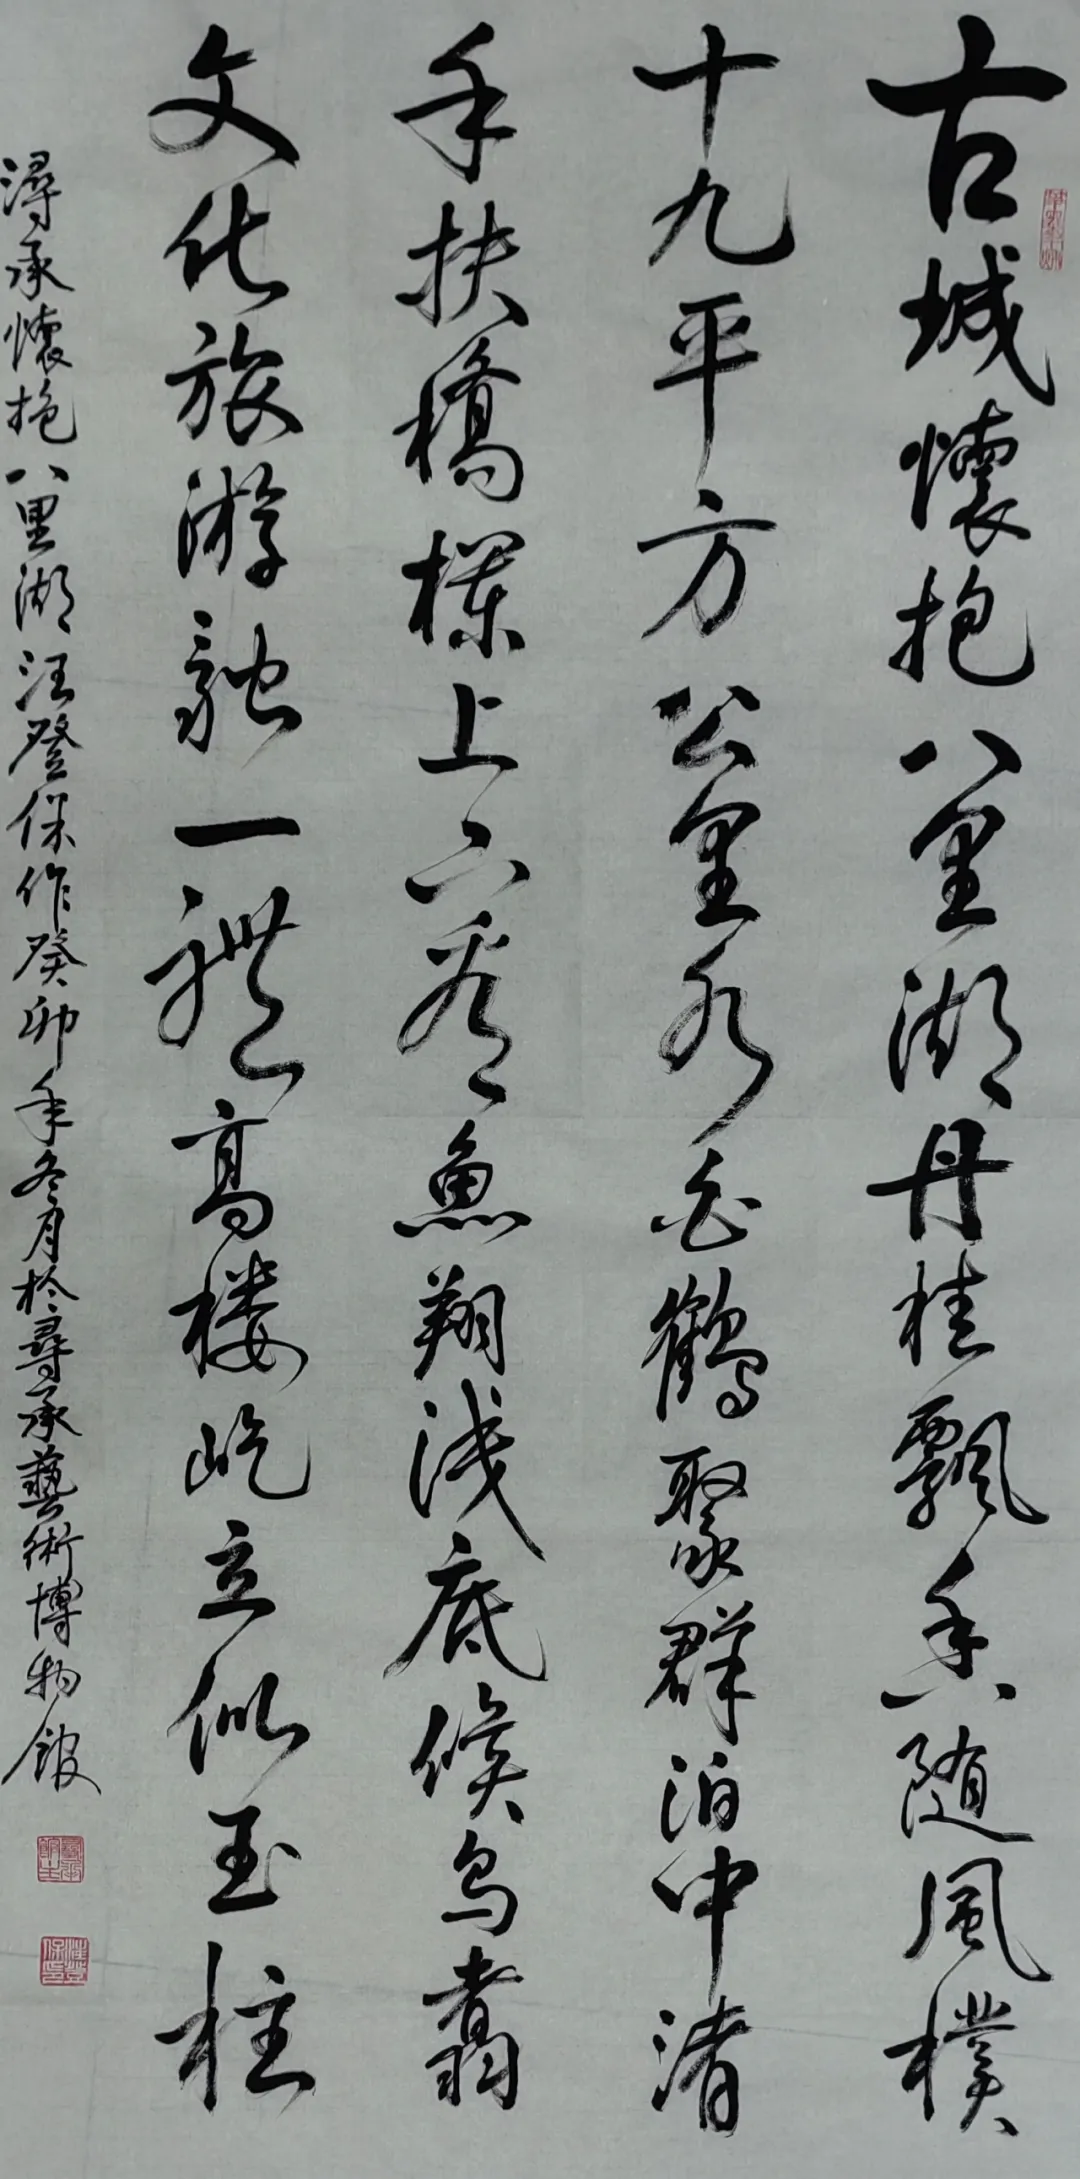 古城懷抱八里湖丹桂飘香随風樸
十九平方公里水白鶴聚群泊中渚
手扶橋欄上下看魚翔浅底候鸟翥
文化旅游融一體高楼屹立似玉柱
潯承懷抱八里湖汪登保作癸卯年冬月於尋承藝術博物館